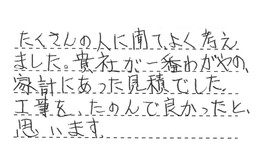 たくさんの人に聞て、よく考え
ました。貴社が一番わがやの、
家計にあった見積でした。
工事を、たのんで良かったと、
思います。